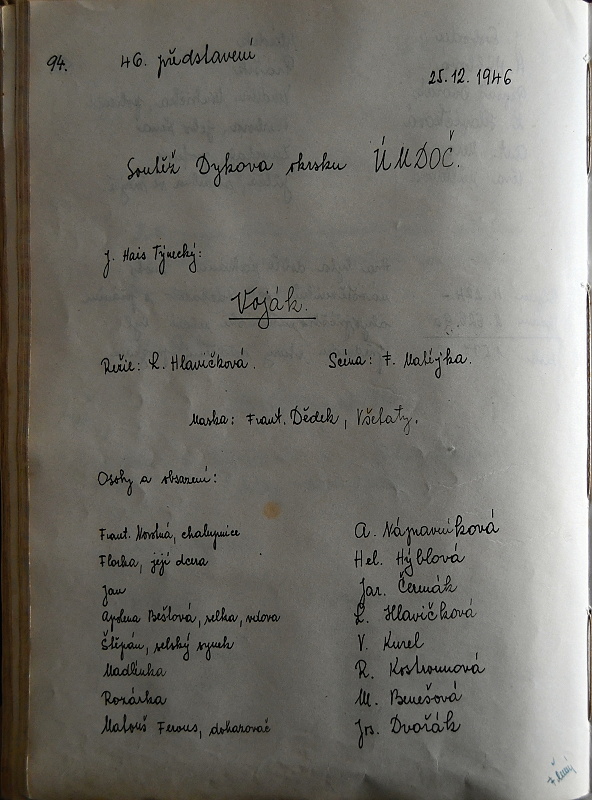 94.
46. představení
25.12.1946
Soutěž Dykova okrsku ÚMDOČ.
J. Hais Týnecký:
Voják.
Režie: L. Hlavičková. Scéna: F. Matějka.
Maska: Frant. Dědek, Všetaty.
Osoby a obsazení:
Frant. Novotná, chalupnice A. Nápravníková
Florka, její dcera Hel. Hýblová
Jan Jar. Čermák
Apolena Bešťová, selka, vdova L. Hlavičková
Štěpán, selský synek V. Kurel
Madlénka R. Kostrounová
Rozárka M. Benešová
Matouš Ferous, dohazovač Jos. Dvořák